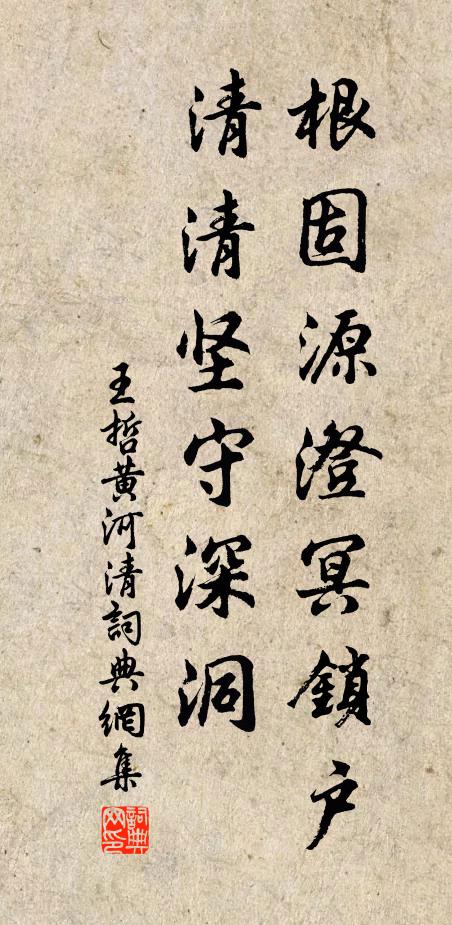 根固源澄冥鎖户
清清坚守深洞
王哲黄河清詞典網集
詞典网印